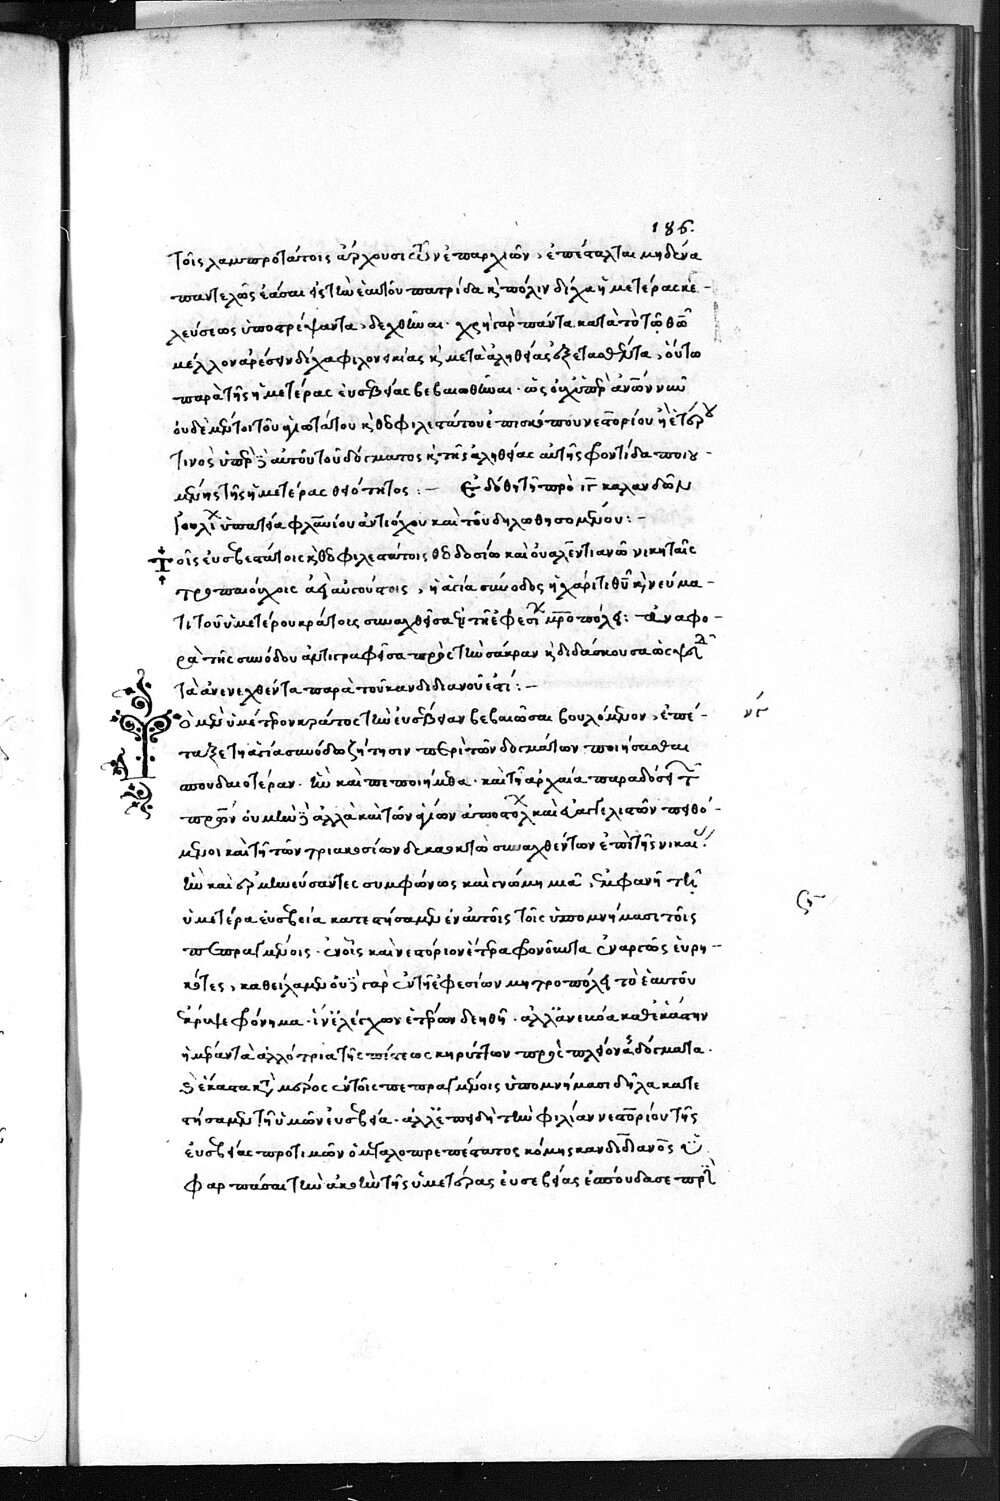 186.
τοῖς λαμπροτάτοις ἄρχουσι τῶν ἐπαρχιῶν, ἐπέσταλται μηδένα
παντελῶς ἐᾶσαι εἰς τὴν ἑαυτοῦ πατρίδα κ̀ πόλιν δίχα ἡμετέρας κε-
λεύσεως ὑποστρέψαντα, δεχθῆναι. χρὴ γὰρ πάντα κατὰ τὸ τῶ θῶ
μέλλον ἀρέσειν δίχα φιλονεικίας κ̀ μετὰ ἀληθείας ἐξετασθέντα, οὕτω
παρὰ τῆς ἡμετέρας εὐσεβείας βεβαιωθῆναι. ὡς οὐχ ὑπὲρ ἀνων νῦν
οὐδὲ μέντοι τοῦ ἁγιωτάτου κ̀ θεοφιλεστάτου ἐπισκόπου νεστορίου ἢ ἑτέρου
τινὸς ὑπὲρ δὲ αὐτοῦ τοῦ δόγματος κ̀ τῆς ἀληθείας αὐτῆς φροντίδα ποιου-
μένης τῆς ἡμετέρας θειότητος :— Ἐδόθη τῆ πρὸ ιγ καλανδῶν
ἰουλί ὑπατεία φλαυίου ἀντιόχου καὶ τοῦ δηλωθησομένου :—
Τοῖς εὐσεβεστάτοις κ̀ θεοφιλεστάτοις θεοδοσίω καὶ οὐαλεντιανῶ νικηταῖς
τροπαιούχοις ἀεὶ αὐγούστοις, ἡ ἁγία σύνοδος ἡ χάριτι θῦ κ̀ νεύμα-
τι τοῦ ὑμετέρου κράτους συναχθεῖσα ἐν τῆ ἐφεσί μροπόλει: Ἀναφο-
ρὰ τῆς συνόδου ἀντιγραφεῖσα πρὸς τὴν σάκραν κ̀ διδάσκουσα ὡς ψευδ
τὰ ἀνενεχθέντα παρὰ τοῦ κανδιδιανοῦ ἐστί :—
Τὸ μὲν ὑμέτερον κράτος τὴν εὐσέβειαν βεβαιῶσαι βουλόμενον, ἐπέ-
ταξε τῆ ἁγία συνόδω ζήτησιν περὶ τῶν δογμάτων ποιήσασθαι
σπουδαιοτέραν. ἣν καὶ πεποιήμεθα. καὶ τῆ ἀρχαία παραδόσει τ
πρων οὐ μὴν δὲ ἀλλὰ καὶ τῶν ἁγίων ἀποστόλ καὶ εὐαγγελιστῶν πειθό-
μενοι καὶ τῆ τῶν τριακοσίων δεκαοκτὼ συναχθέντων ἐπὶ τῆς νικαί
ἣν καὶ ἑρμηνεύσαντες συμφώνως καὶ γνώμη μιᾶ, ἐμφανῆ τῆ
ὑμετέρα εὐσεβεία κατεστήσαμεν ἐν αὐτοῖς τοῖς ὑπομνήμασι τοῖς
πεπραγμένοις. ἐν οἷς καὶ νεστόριον ἕτερα φρονοῦντα ἐναργῶς εὑρη-
κότες, καθείλαμεν οὐ δὲ γὰρ ἐν τῆ ἐφεσίων μητροπόλει τὸ ἑαυτοῦ
ἔκρυψε φρόνημα. ἵν' ἐλέγχων ἑτέρων δεηθῆ. ἀλλ' ἀνεκόα καθ' ἑκάστην
ἡμέραν τὰ ἀλλότρια τῆς πίστεως κηρύττων πρὸς πλείονα δόγματα.
ἃ ἕκαστα κατὰ μέρος ἐν τοῖς πεπραγμένοις ὑπομνήμασι δῆλα κατε
στήσαμεν τῆ ὑμῶν εὐσεβεία. ἀλλ' ἐπειδὴ τὴν φιλίαν νεστορίου τῆς
εὐσεβείας προτιμῶν ὁ μεγαλοπρεπέστατος κόμης κανδιδιανὸς
γὰρ πάσαι τὴν ἀκοὴν τῆς ὑμετέρας εὐσεβείας ἐσπούδασε πρὶ
νς